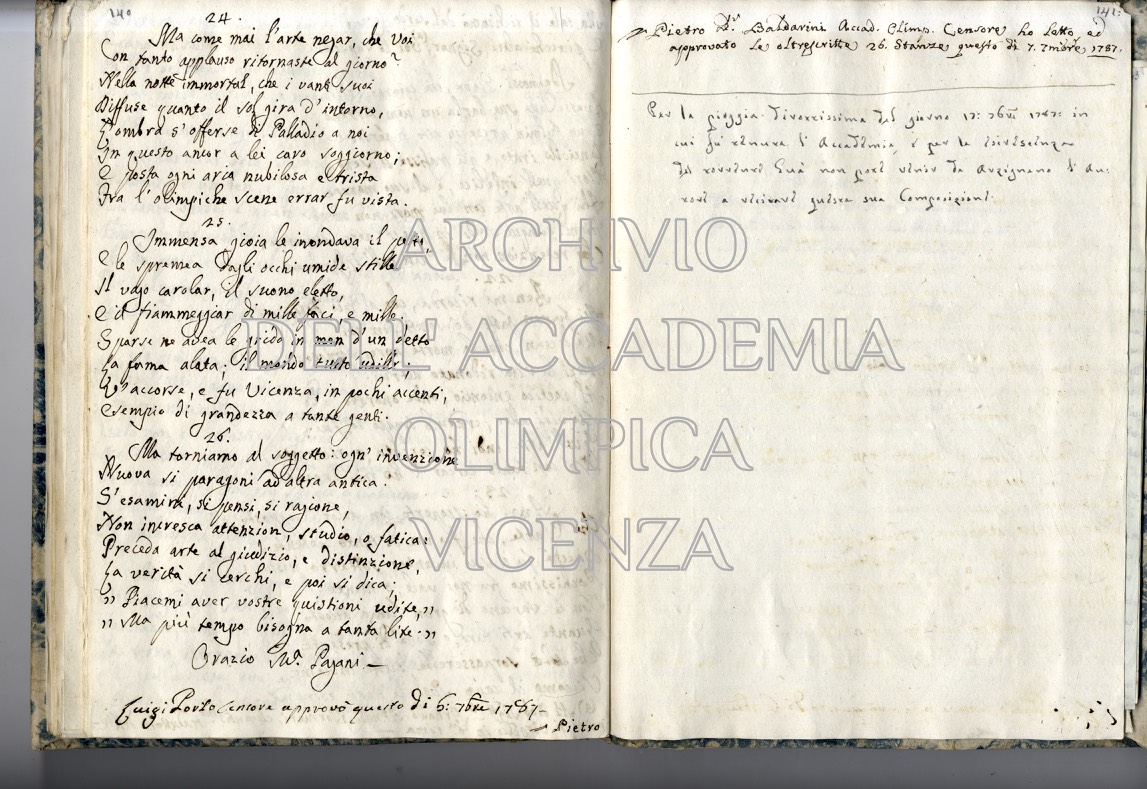 140
24.
Ma come mai l'arte negar, che voi
Con tanto applauso ritornaste al giorno?
Nella notte immortal, che i vanti suoi
Diffuse quanto il sol gira d'intorno,
L'ombra s'offerse di Palladio a noi
In questo ancor a lei caro soggiorno;
E posta ogni aria nubilosa e trista
Fra l'olimpiche scene errar fu vista.
25.
Immensa gioia le inondava il petto,
E le spremea dagli occhi umide stille
Il vago carolar, il suono eletto,
E il fiammeggiar di mille faci, e mille.
Sparse ne avea le grida in men d'un detto
La fama alata; il mondo tutto udille;
V'accorse, e fu Vicenza, in pochi accenti,
Esempio di grandezza a tante genti.
26.
Ma torniamo al soggetto: ogn' invenzione
Nuova si paragoni ad altra antica:
S'esamini, si pensi, si ragione,
Non incresca attenzion, studio, o fatica:
Preceda arte al giudizio, e distinzione,
La verità si cerchi, e poi si dica;
" Piacemi aver vostre quistioni udite, "
" Ma più tempo bisogna a tanta lite. "
Orazio Ma. Pagani
Luigi Porto Censore approvò questo dì 6: 7bre 1787
Pietro
141:
Pietro Dr. Baldarini Accad. Olimp. Censore ho letto, ed
approvato le oltrescritte 26. Stanze questo dì 7. 7mbre 1787.
Per la pioggia dirottissima del giorno 17: 7bre 1787: in
cui fu tenuta l'Accademia, e per la
del non potè venir da Arzignano l'Au-
tore a recitare questa sua Composizione.
ARCHIVIO
DELL' ACCADEMIA
OLIMPICA
VICENZA